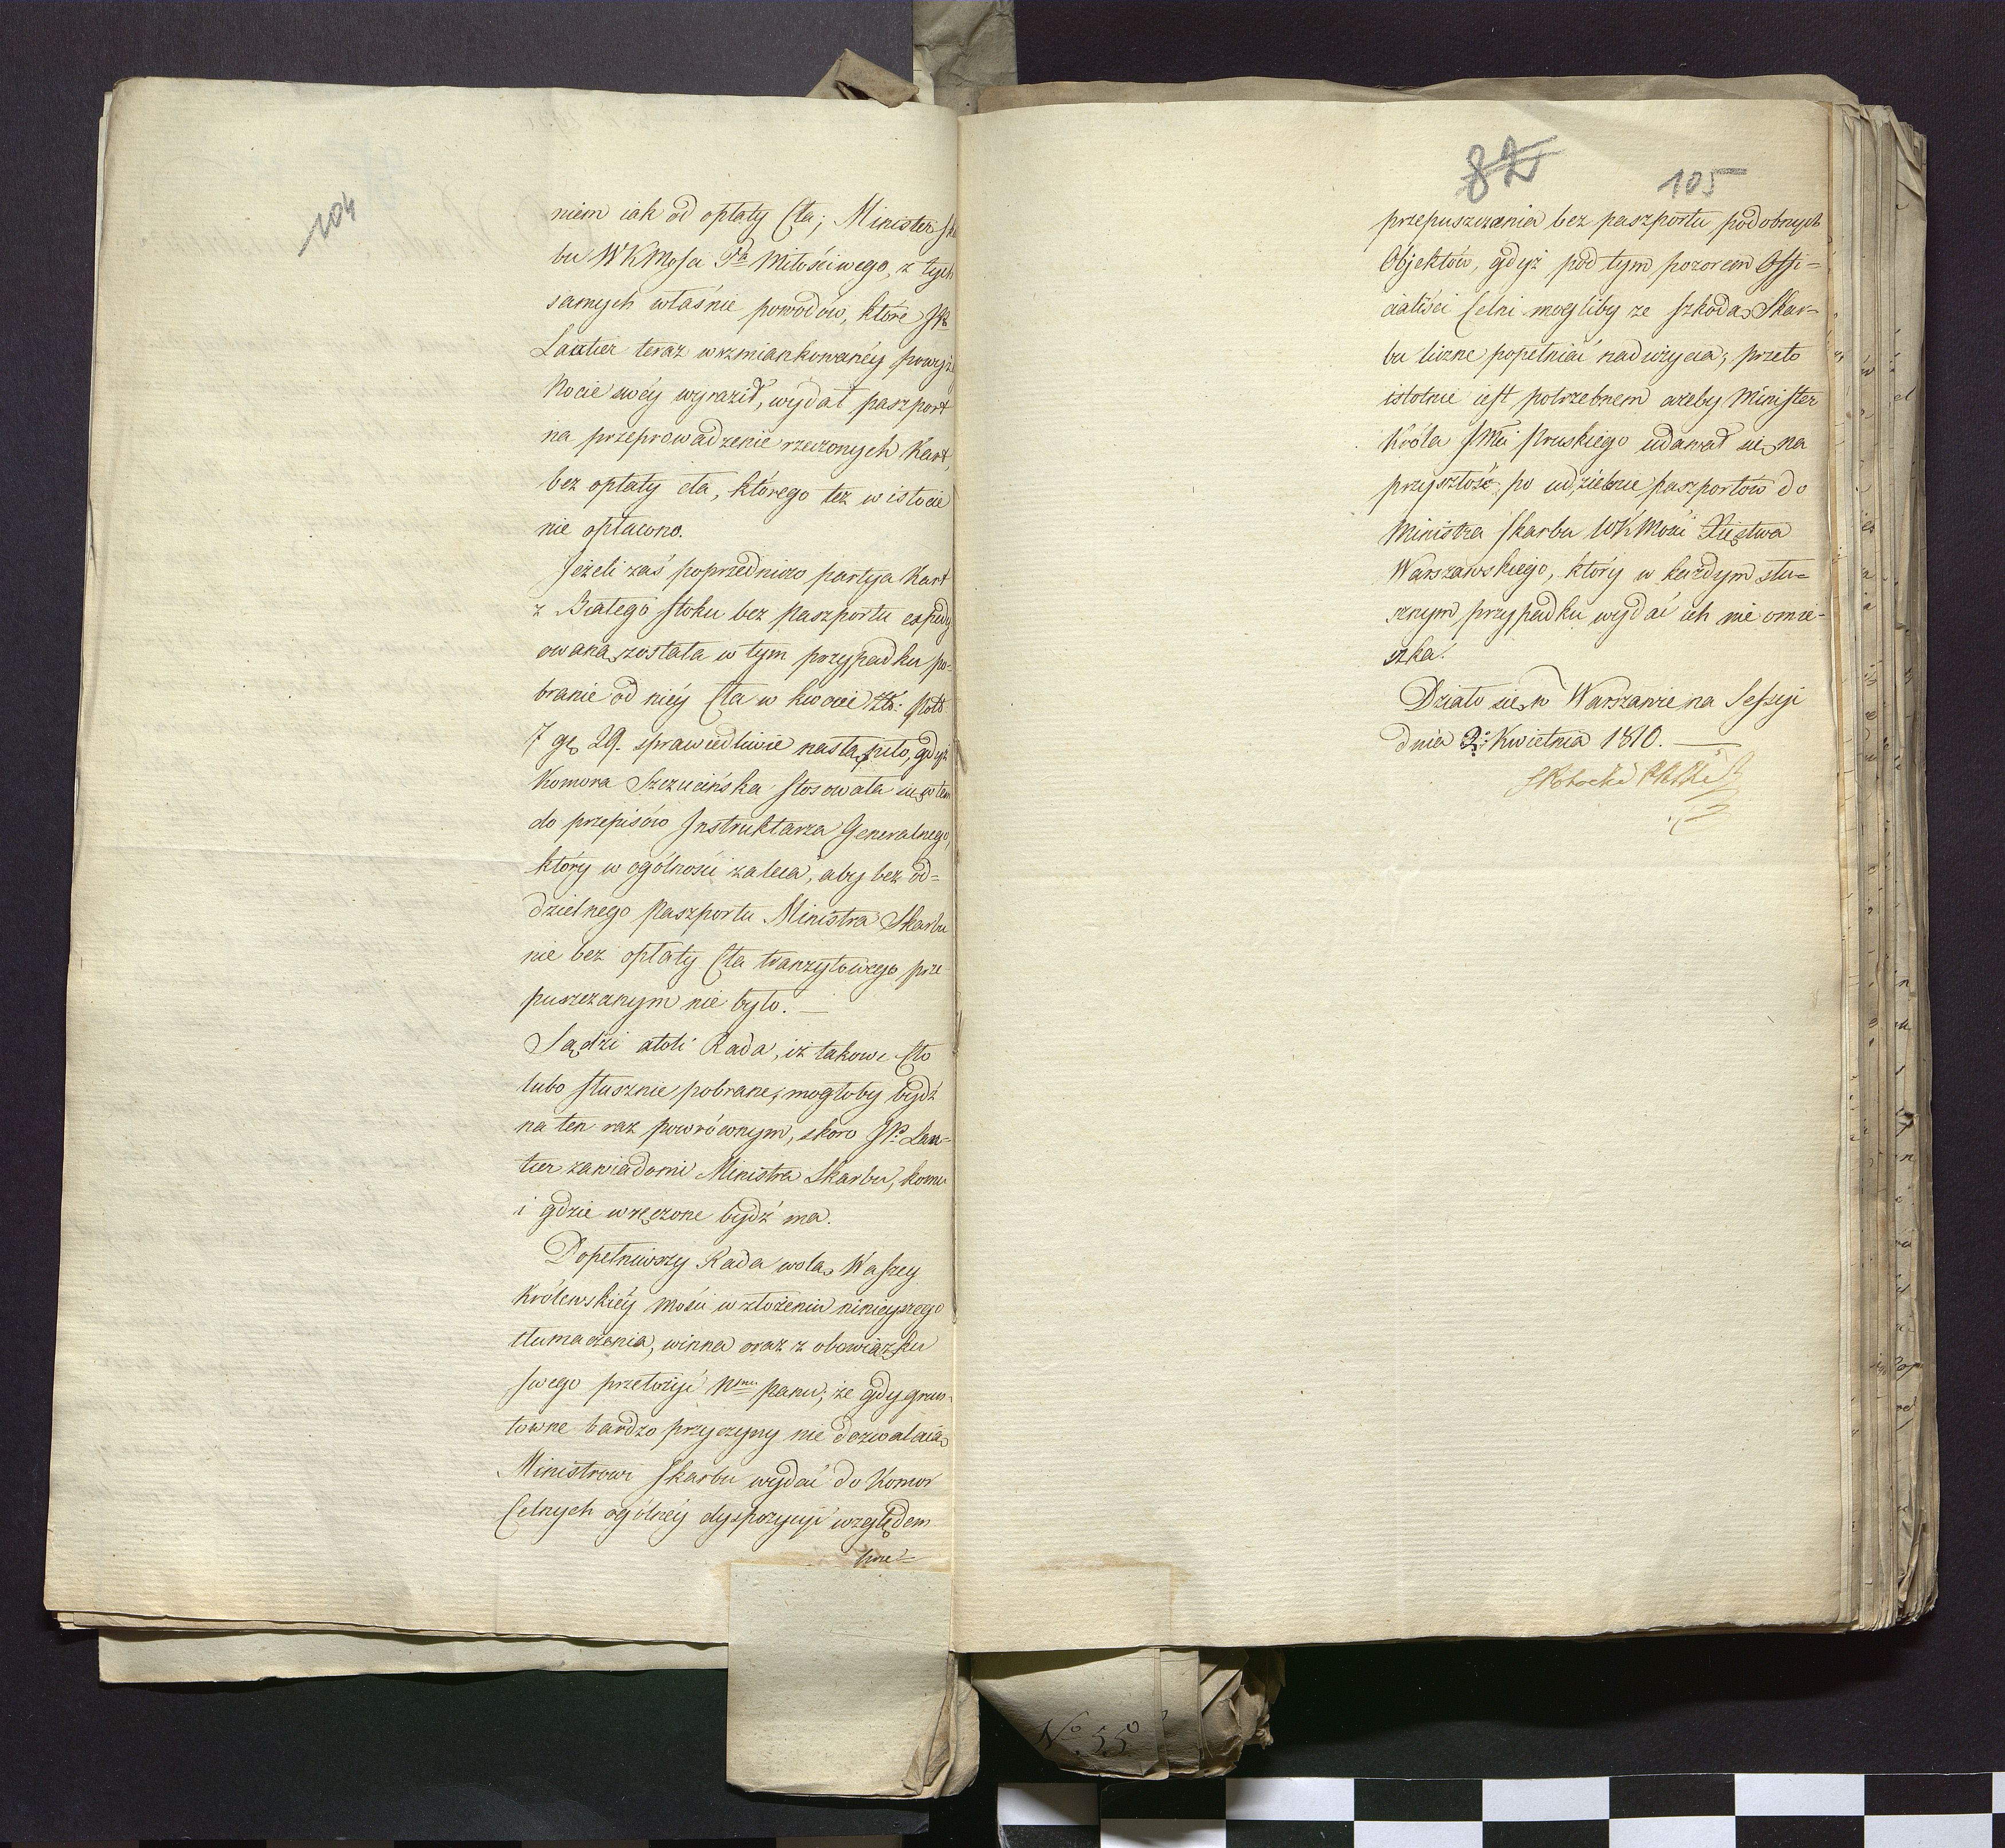 104
niem iak od opłaty Cła; Minister Ska
bu WKMości Pa Miłościwego, z tych
samych właśnie powodów, które JP
Lautier teraz wzmiankowanéy powyż
Nocie swéy wyraził, wydał paszport
na przeprowadzenie rzeczonych Kart,
bez opłaty cła, którego też w istocie
nie opłacono.
Jeżeli zaś poprzedniczo partyja Kart
z Białego stoku bez Paszportu expedy
owaną została w tym przypadku po-
branie od niéy Cła w kwocie Zło: Pols
7 gr 29. sprawiedliwie nastąpiło, gdyż
Komora Szczucińska stosowała się w tem
do przepisów Jnstruktarza Generalnego,
który w ogólności zaleca, aby bez od=
dzielnego Paszportu Ministra Skarbu
nic bez opłaty Cła tranzytowego prze
puszczanym nie było. —
Sądzi atoli Rada, iż takowe Cło
lubo słusznie pobrane, mogłoby bydź
na ten raz powróconym, skoro JP. Lau-
tier zawiadomi Ministra Skarbu, komu
i gdzie wręczone bydź ma.
Dopełniwszy Rada wolą Waszey
Królewskiéy Mości w złożeniu ninieyszego
tłumaczenia, winna oraz z obowiązku
swego przełożyć Nmu Panu; że gdy grun-
towne bardzo przyczyny nie dozwalaią
Ministrowi Skarbu wydać do Komor
Celnych ogólnéy dyspozycyi względem
prze=
82
105
przepuszczania bez paszportu podobnych
Objektów, gdyż pod tym pozorem Offi=
cialiści Celni mogliby ze szkodą Skar=
bu liczne popełniać nadużycia; przeto
istotnie iest potrzebnem ażeby Minister
Króla JMci Pruskiego udawał się na
przyszłość po udzielnie paszportów do
Ministra Skarbu WKMości Xięstwa
Warszawskiego, który w każdym słu=
sznym przypadku wydać ich nie omie-
szka.
Działo się w Warszawie na Sessyi
dnia 2. Kwietnia 1810. —
SPotocki
No. 55